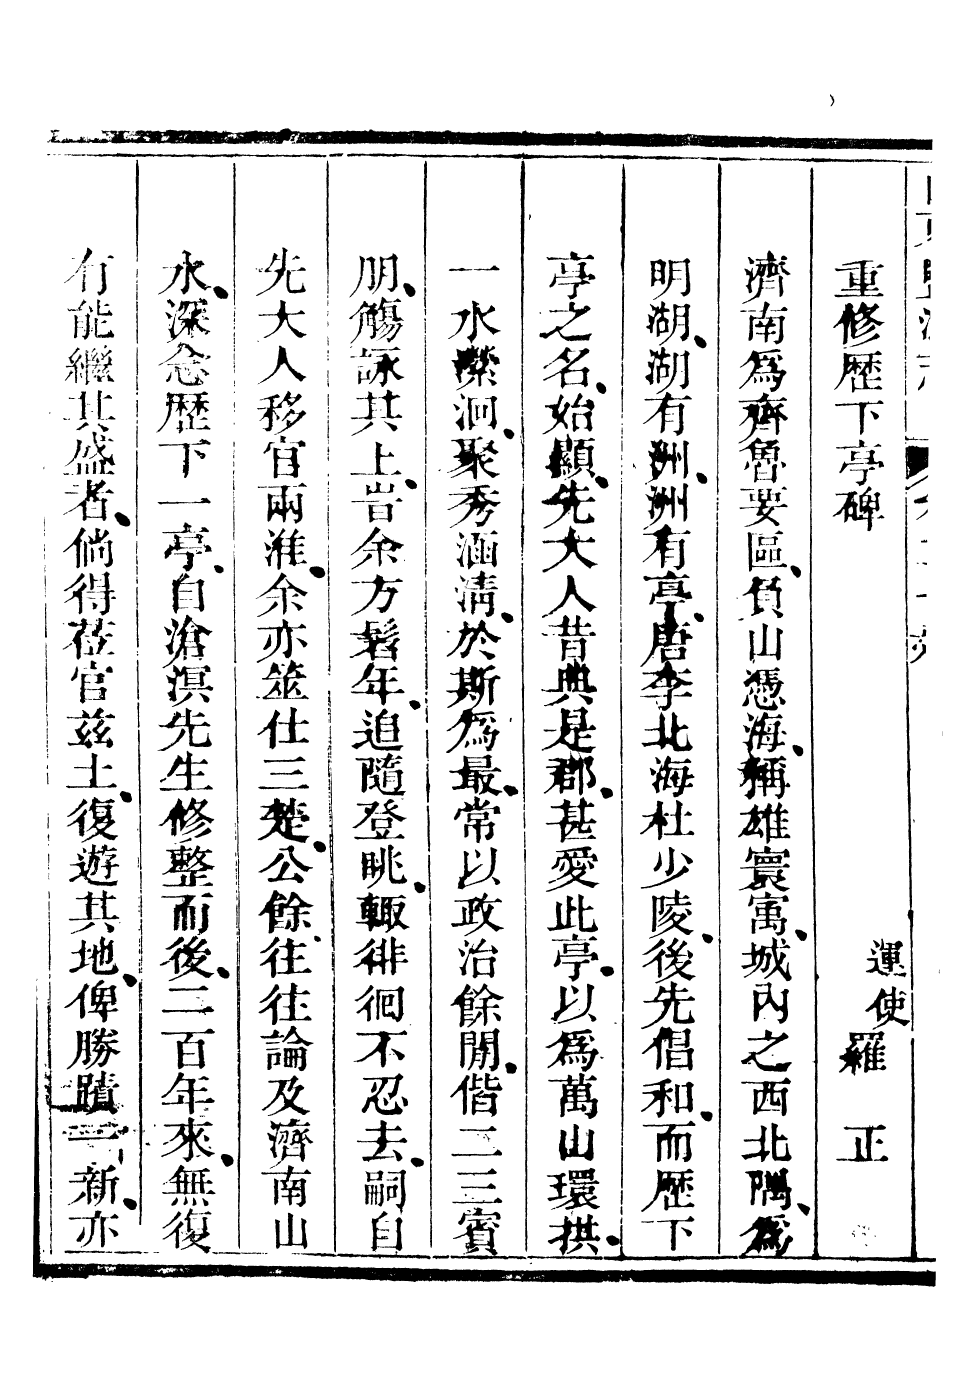 重修歷下亭碑　運使羅　正
濟南爲齊魯要區負山憑海稱雄寰寓城內之西北隅爲
明湖湖有洲洲有亭唐李北海杜少陵後先倡和而歷下
亭之名始顯先大人昔典是郡甚愛此亭以爲萬山環拱
一水瀠洄聚秀涵淸於斯爲最常以政治餘閒偕二三賓
朋觴詠其上旹余方髫年追隨登眺輙徘徊不忍去嗣自
先大人移官兩淮余亦筮仕三楚公餘往往論及濟南山
水深念歷下一亭自滄溟先生修整而後二百年來無復
有能繼其盛者倘得莅官茲土復遊其地俾勝蹟一新亦